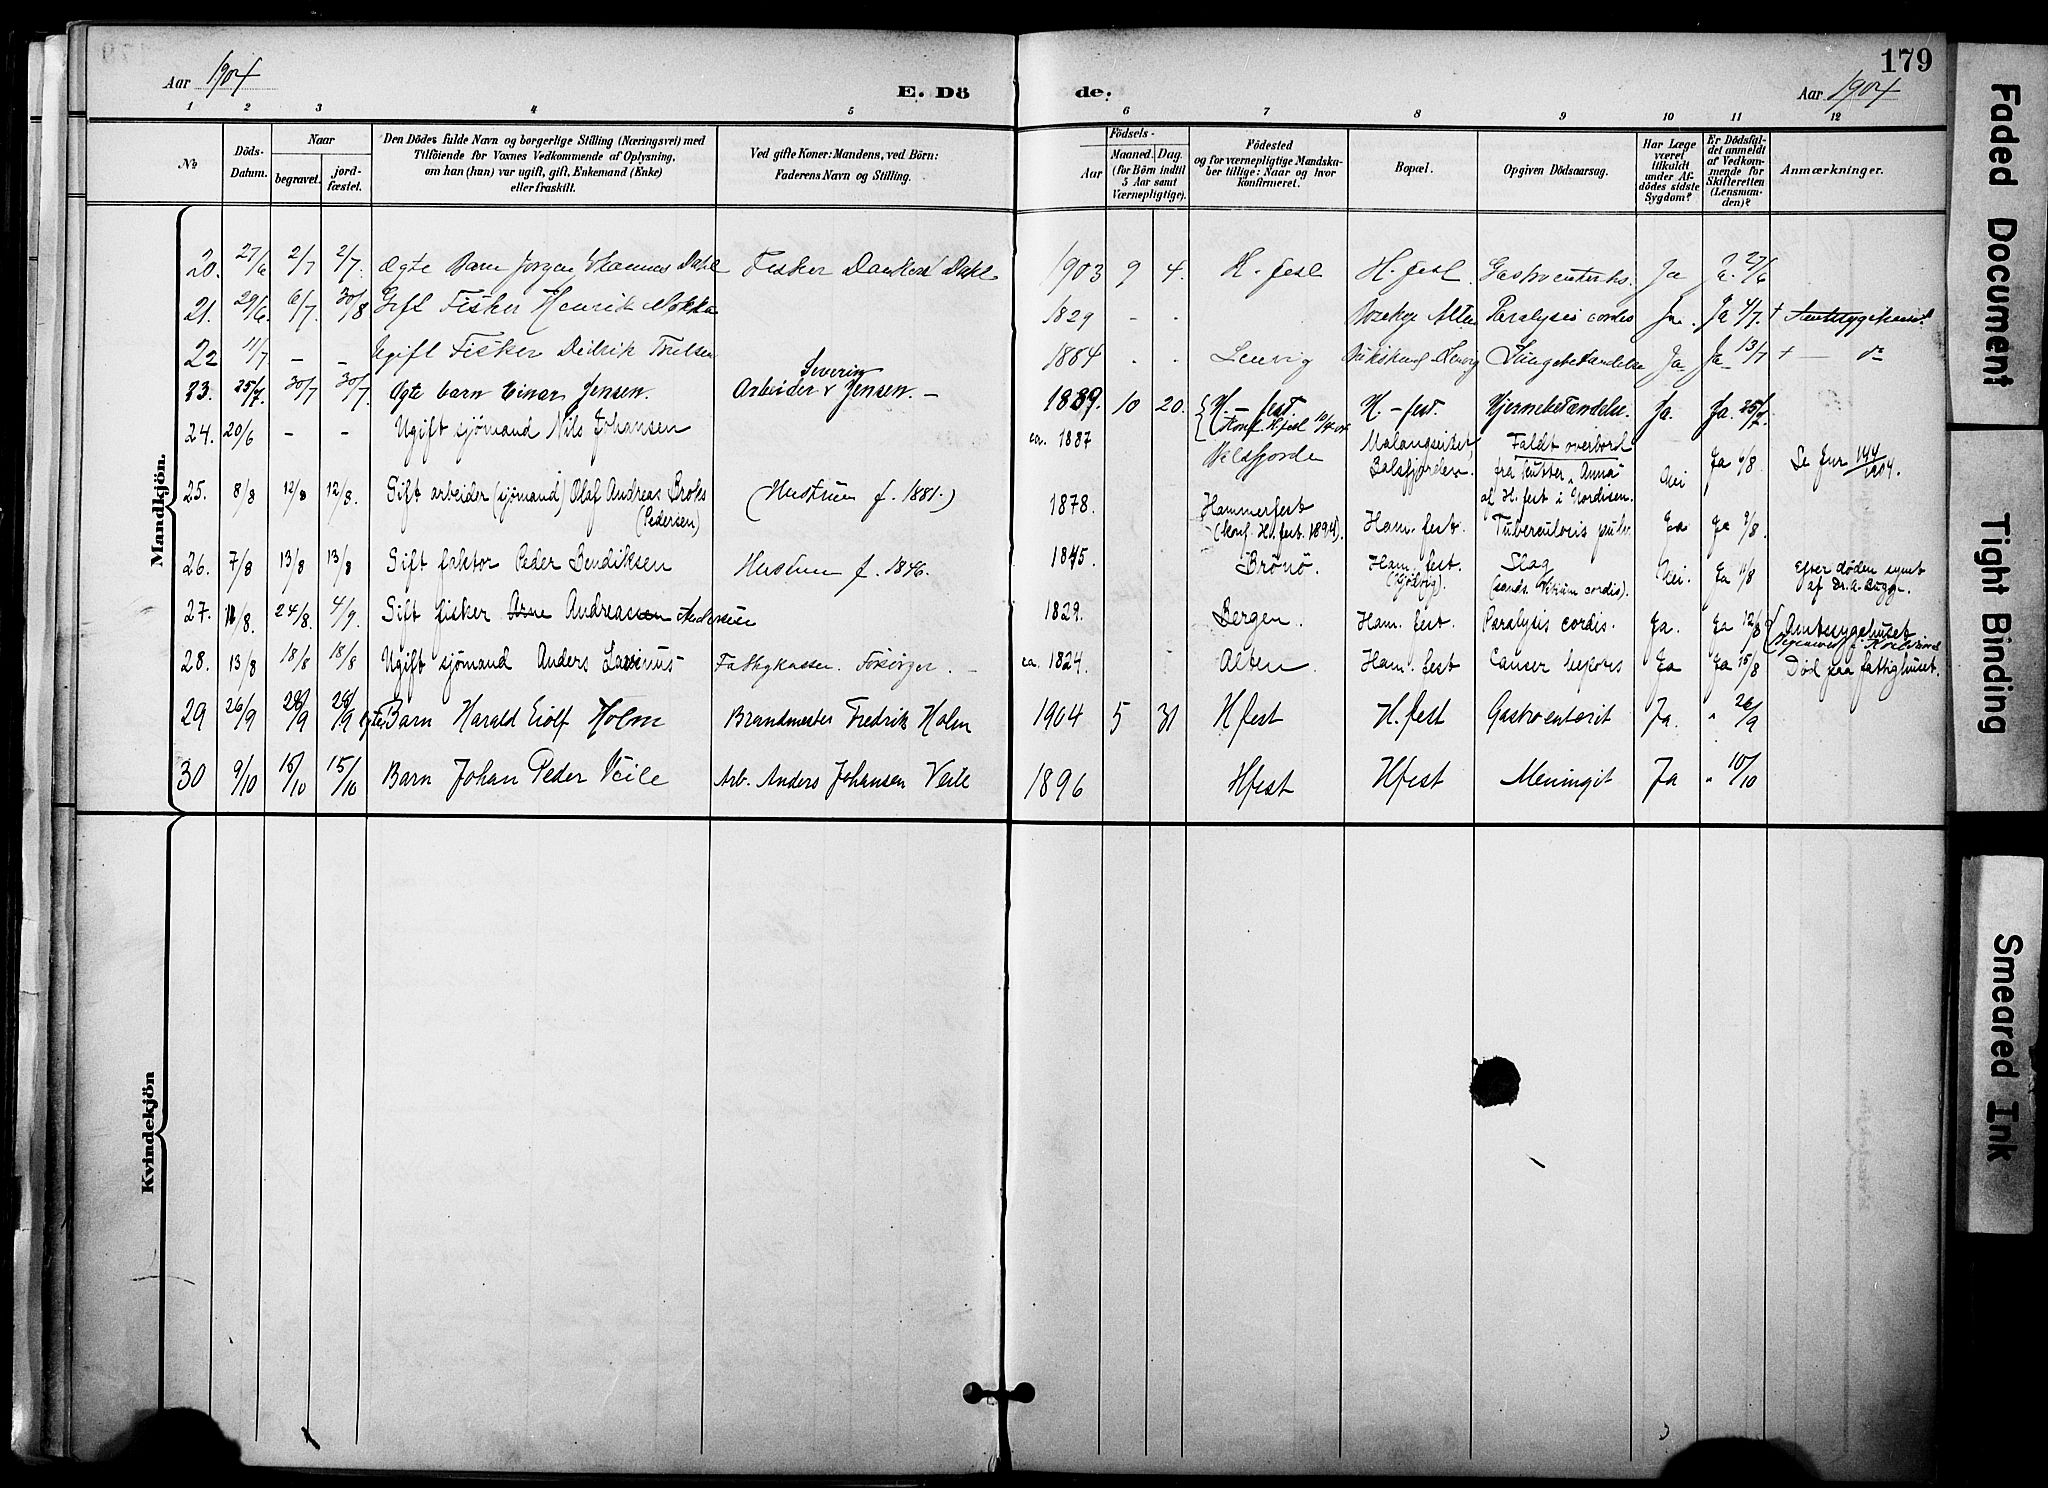 179
Aar 1904
E. Döde:
Aar 1904
1 2 3 4 5 6 7 8 9 10 11 12
No
Döds-Datum.
Naar
begravet.
jordfæstet.
Den Dödes fulde Navn og borgerlige Stilling (Næringsvei) med
Tilföiende for Voxnes Vedkommende af Oplysning,
om han (hun) var ugift, gift, Enkemand (Enke)
eller fraskilt.
Ved gifte Koner: Mandens, ved Börn:
Faderens Navn og Stilling.
Födsels-
Aar
Maaned. Dag.
(for Börn indtil
5 Aar samt
Værnepligtige).
Födested
og for værnepligtige Mandska-
ber tillige: Naar og hvor
konfirmeret.
Bopæl.
Opgiven Dödsaarsag.
Har Læge
været
tilkaldt
under Af-
dödes sidste
Sygdom?
Er Dödsfal-
det anmeldt
af Vedkom-
mende for
Skifteretten
(Lensman-
den)?
Anmærkninger.
Mandkjön.
20. 27/6 2/7 2/7. Ægte Barn Jørgen Dahl Fisker Dahl 1903 9 4. H.fest H.fest Ja Ja 27/6
21. 29/6 6/7. 30/8 Gift Fisker Henrik Mokka 1829 - - Alten Paralysis cordis Ja. Ja 4/7. +
22 11/7 - - Ugift Fisker Didrik 1864 - - Lenvig Lungebetændelse Ja Ja 13/7 + - do
Severin
23. 25/7. 30/7 30/7. Ægte barn Einar Jensen. Arbeider v Jensen. - 1889. 10 20. H.-fest. H.-fest. Hjernebetændelse. Ja. Ja. 25/7.
Konf. H.fest
24. 20/6 - - Ugift sjømand Nils Johansen ca. 1887 Velfjorden Malangseidet, Balsfjorden. Faldt overbord
fra kutter "Anna"
af H.fest i Nordisen.
Nei Ja 6/8. Se Jur 144/1904.
25. 8/8 12/8 12/8. Gift arbeider (sjömand) Olaf Andreas Broks
(Pedersen)
(Hustruen f. 1881.) 1878. Hammerfest
(Konf. H.fest. 1894).
Ham.fest. Tuberculosis pulm. Ja Ja 9/8.
26. 7/8 13/8 13/8 Gift faktor Peder Bendiksen Hustruen f. 1846. 1845 Brönö. Ham.fest.
Slag
(sands. Vitium cordis).
Nei. Ja 11/8 Efter døden synet
af Dr. A. Bugge.
27. 11/8. 24/8. 4/9. Gift fisker Arne Andreassen Andersen 1829. Bergen. Ham.fest Paralysis cordis. Ja. Ja 12/8 Amtssygehuset
(Begravet i
28. 13/8 18/8 18/8 Ugift sjömand Anders Fattigkassen Forsörger. - ca. 1824. Alten. Ham.fest Cancer hepatis Ja Ja 15/8 Död paa fattighuset.
29 26/9 28/9 28/9 Ægte Barn Harald Eiolf Holm Brandmester Fredrik Holm 1904 5 31 Hfest H.fest Gastroenterit Ja. " 26/9
30 9/10 15/10 15/10 Barn Johan Peder Veile Arb. Anders Johansen Veile 1896 Hfest Hfest Meningit Ja " 10/10
Kvindekjön
Faded Document
Tight Binding
Smeared Ink